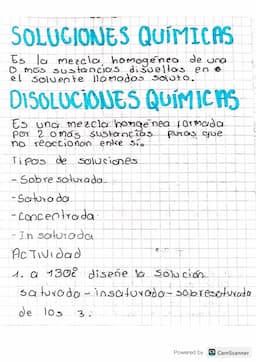 SOLUCIONES QUÍMICAS
Es la mezcla homogénea de una
o mas sustancias disuellas en
el solvente llamados soluto.
DISOLUCIONES QUÍMICAS
Es una mezcla homgénea formada
por 2 o más sustancias puras que
no reaccionan entre si.
Tipos de soluciones
- Sobresaturada
- Saturada
- Concentrada
- Insaturada
Actividad
1. a 130° diseñe la solución
saturado - insaturado - sobresaturado
de los 3.
Powered by CS CamScanner